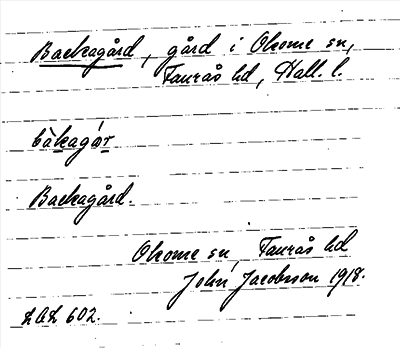 Backagård, gård i Okome sn,
Faurås hd, Hall. l.
bàkagár
Backagård.
Okome sn, Faurås hd
John Jacobsson 1918.
602.